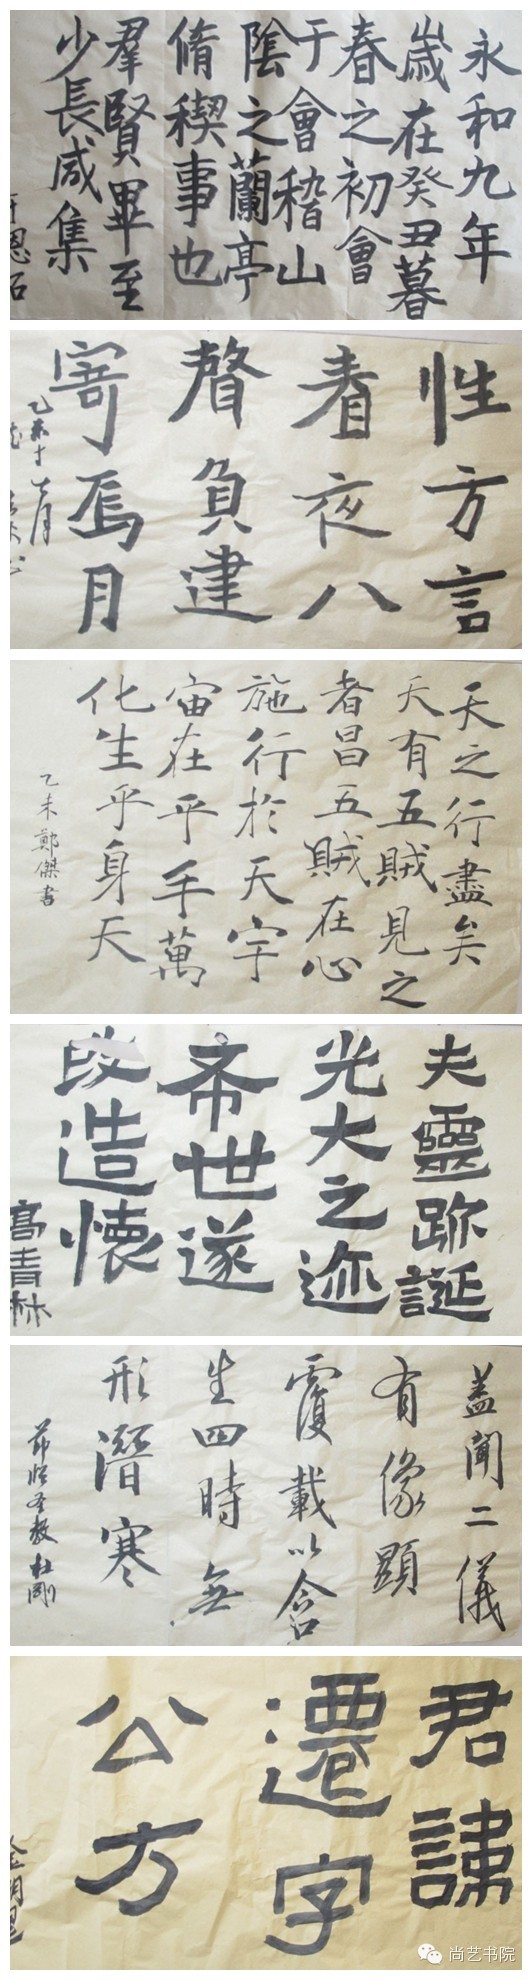 永和九年
歲在癸丑暮
春之初會
于會稽山
陰之蘭亭
脩稧事也
羣賢畢至
少長咸集
恩石
性方言
春夜八
聲負建
寄焉月
乙未十一月
天之行盡矣
天有五賊見之
者昌五賊在心
施行於天宇
宙在乎手萬
化生乎身天
乙未鄭傑書
夫靈跡誕
光大之迹
帝世遂
改造懷
高青林
蓋聞二儀
有像顯
覆載以含
生四時無
形潛寒
節臨圣教杜剛
君諱
遷字
公方
尚艺书院